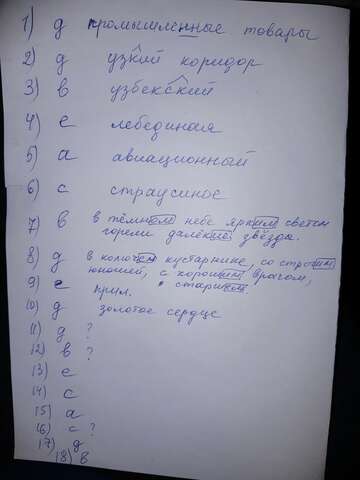 1) д промышленные товары
2) д узкий коридор
3) в узбекский
4) е лебединая
5) а авиационный
6) с страусиное
7) в в тёмном небе ярким светом
горели далёкие звёзды.
8) д в колючем кустарнике, со строгим
юношей, с хорошим врагом,
9) е прил. • старинем.
10) д золотое сердце
11) д ?
12) в ?
13) е
14) с
15) а
16) с ?
17) д
18) в